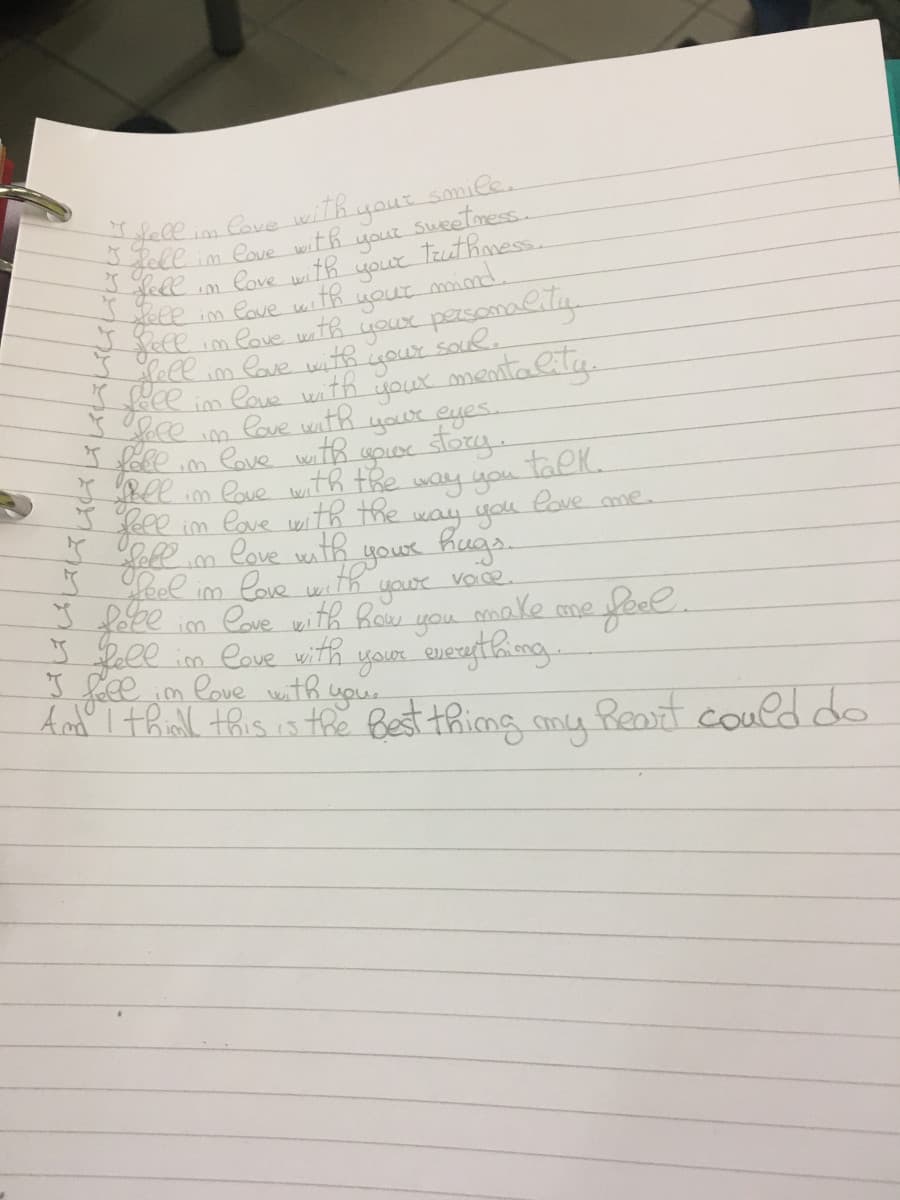 I fell in love with your smile.
I fell in love with your sweetness.
I fell in love with your truthness.
I fell in love with your mind.
I fell in love with your personality.
I fell in love with your soul.
I fell in love with your mentality.
I fell in love with your eyes.
I fell in love with your story.
I fell in love with the way you talk.
I fell in love with the way you love me.
I fell in love with your hugs.
I feel in love with your voice.
I fell in love with how you make me feel.
I fell in love with your everything.
I fell in love with you.
And I think this is the Best thing my heart could do